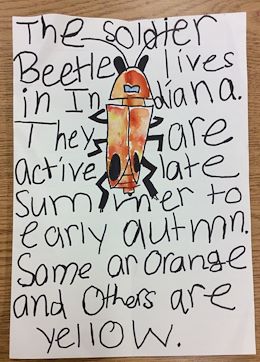 The soldier
Beetle lives
in Indiana.
They are
active late
Summer to
early autmn.
Some ar orange
and Others are
yellow.